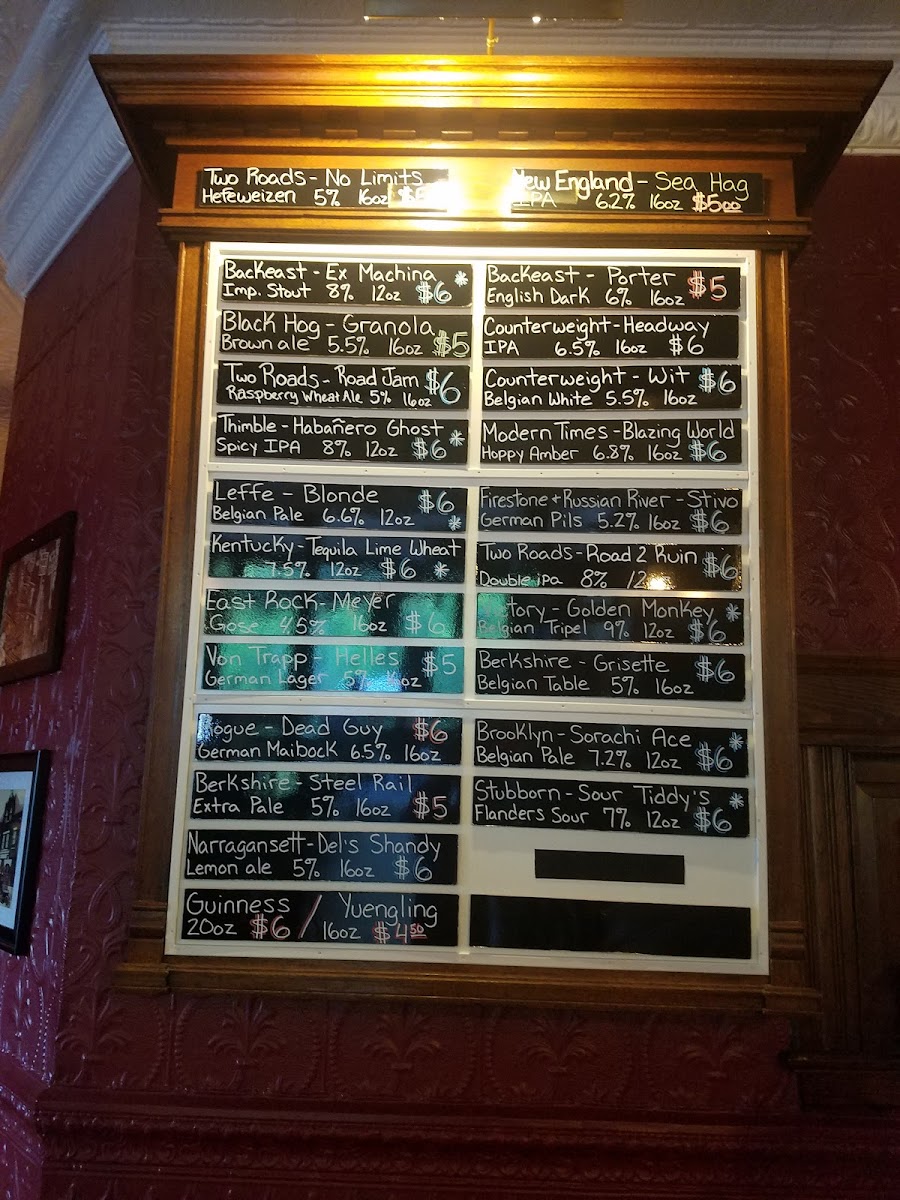 Two Roads - No Limits
Hefeweizen 5% 16oz $5
New England - Sea Hag
IPA 6.2% 16oz $5.00
Backeast - Ex Machina *
Imp. Stout 8% 12oz $6
Black Hog - Granola
Brown ale 5.5% 16oz $5
Two Roads - Road Jam $6
Raspberry Wheat Ale 5% 16oz
Thimble - Habañero Ghost *
Spicy IPA 8% 12oz $6
Backeast - Porter $5
English Dark 6% 16oz
Counterweight - Headway
IPA 6.5% 16oz $6
Counterweight - Wit $6
Belgian White 5.5% 16oz
Modern Times - Blazing World
Hoppy Amber 6.8% 16oz $6
Leffe - Blonde $6
Belgian Pale 6.6% 12oz *
Kentucky - Tequila Lime Wheat
7.5% 12oz $6 *
East Rock - Meyer
Gose 4.5% 16oz $6
Von Trapp - Helles $5
German Lager 5% 16oz
Firestone + Russian River - Stivo
German Pils 5.2% 16oz $6
Two Roads - Road 2 Ruin $6
Double ipa 8%
Golden Monkey *
Belgian Tripel 9% 12oz $6
Berkshire - Grisette $6
Belgian Table 5% 16oz
Rogue - Dead Guy $6
German Maibock 6.5% 16oz
Berkshire Steel Rail
Extra Pale 5% 16oz $5
Narragansett - Del's Shandy
Lemon ale 5% 16oz $6
Guinness / Yuengling
20oz $6 16oz $4.50
Brooklyn - Sorachi Ace *
Belgian Pale 7.2% 12oz $6
Stubborn - Sour Tiddy's *
Flanders Sour 7% 12oz $6